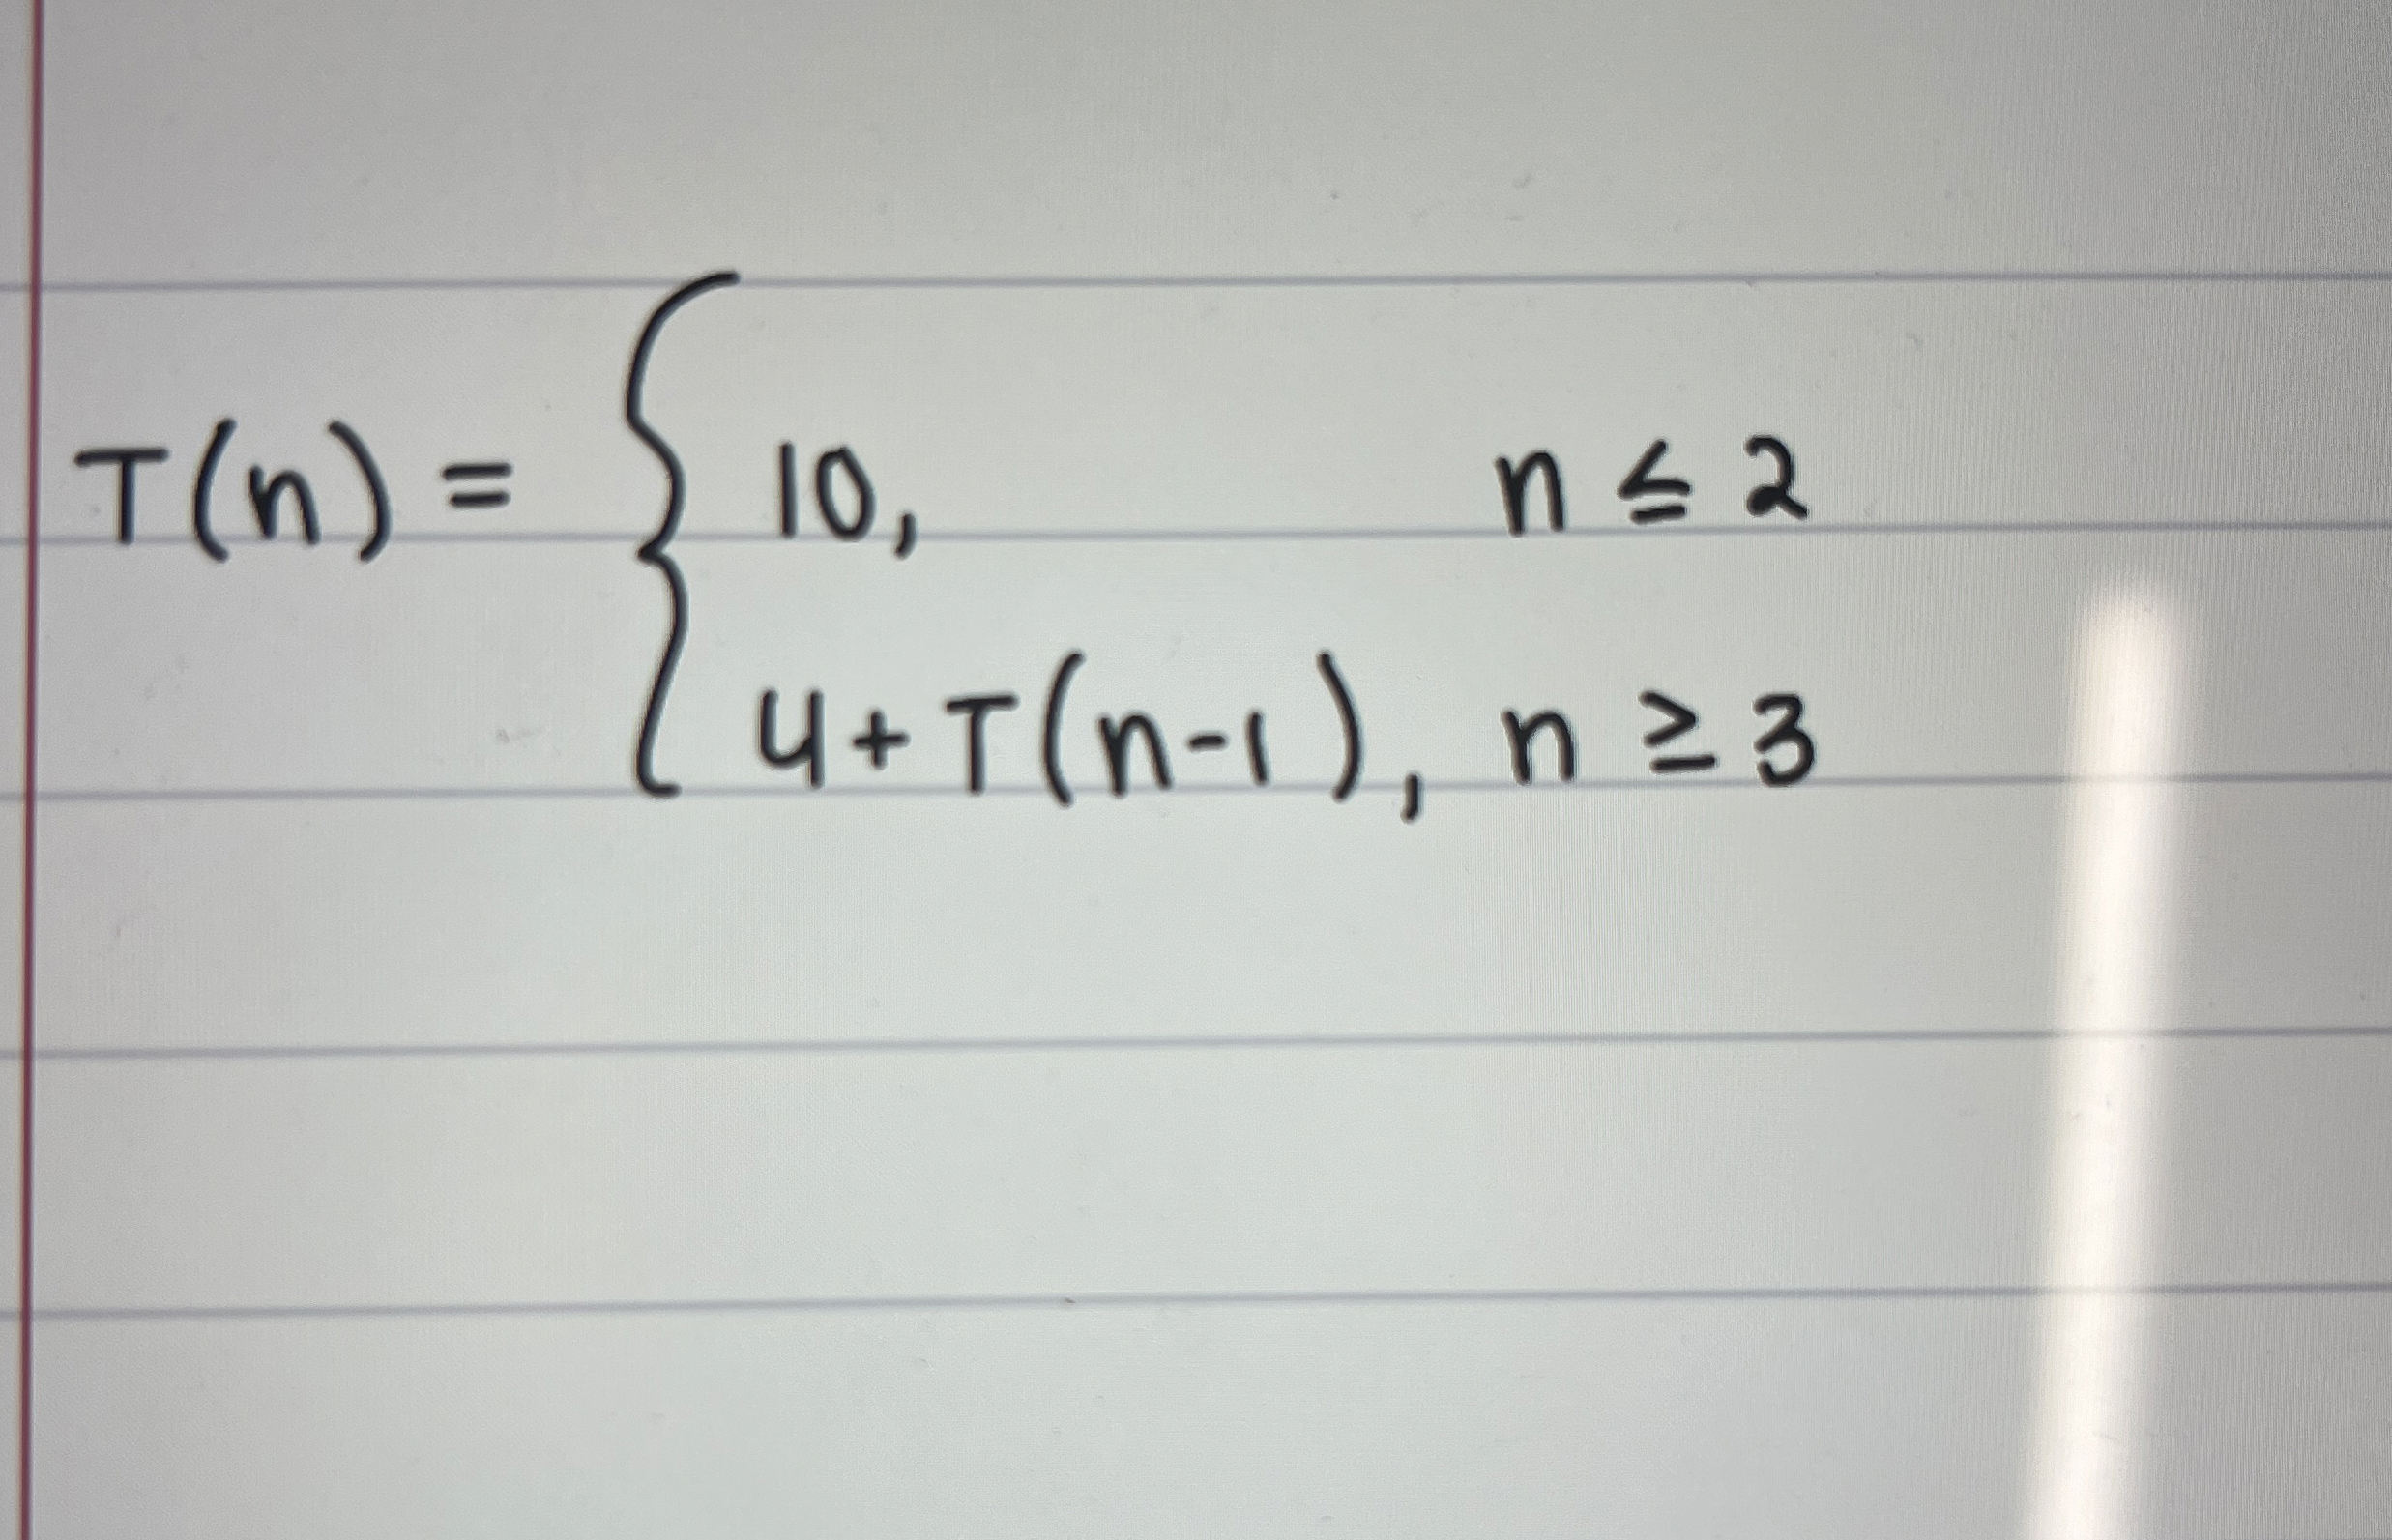 T(n) = { 10, n ≤ 2
4+T(n-1), n ≥ 3